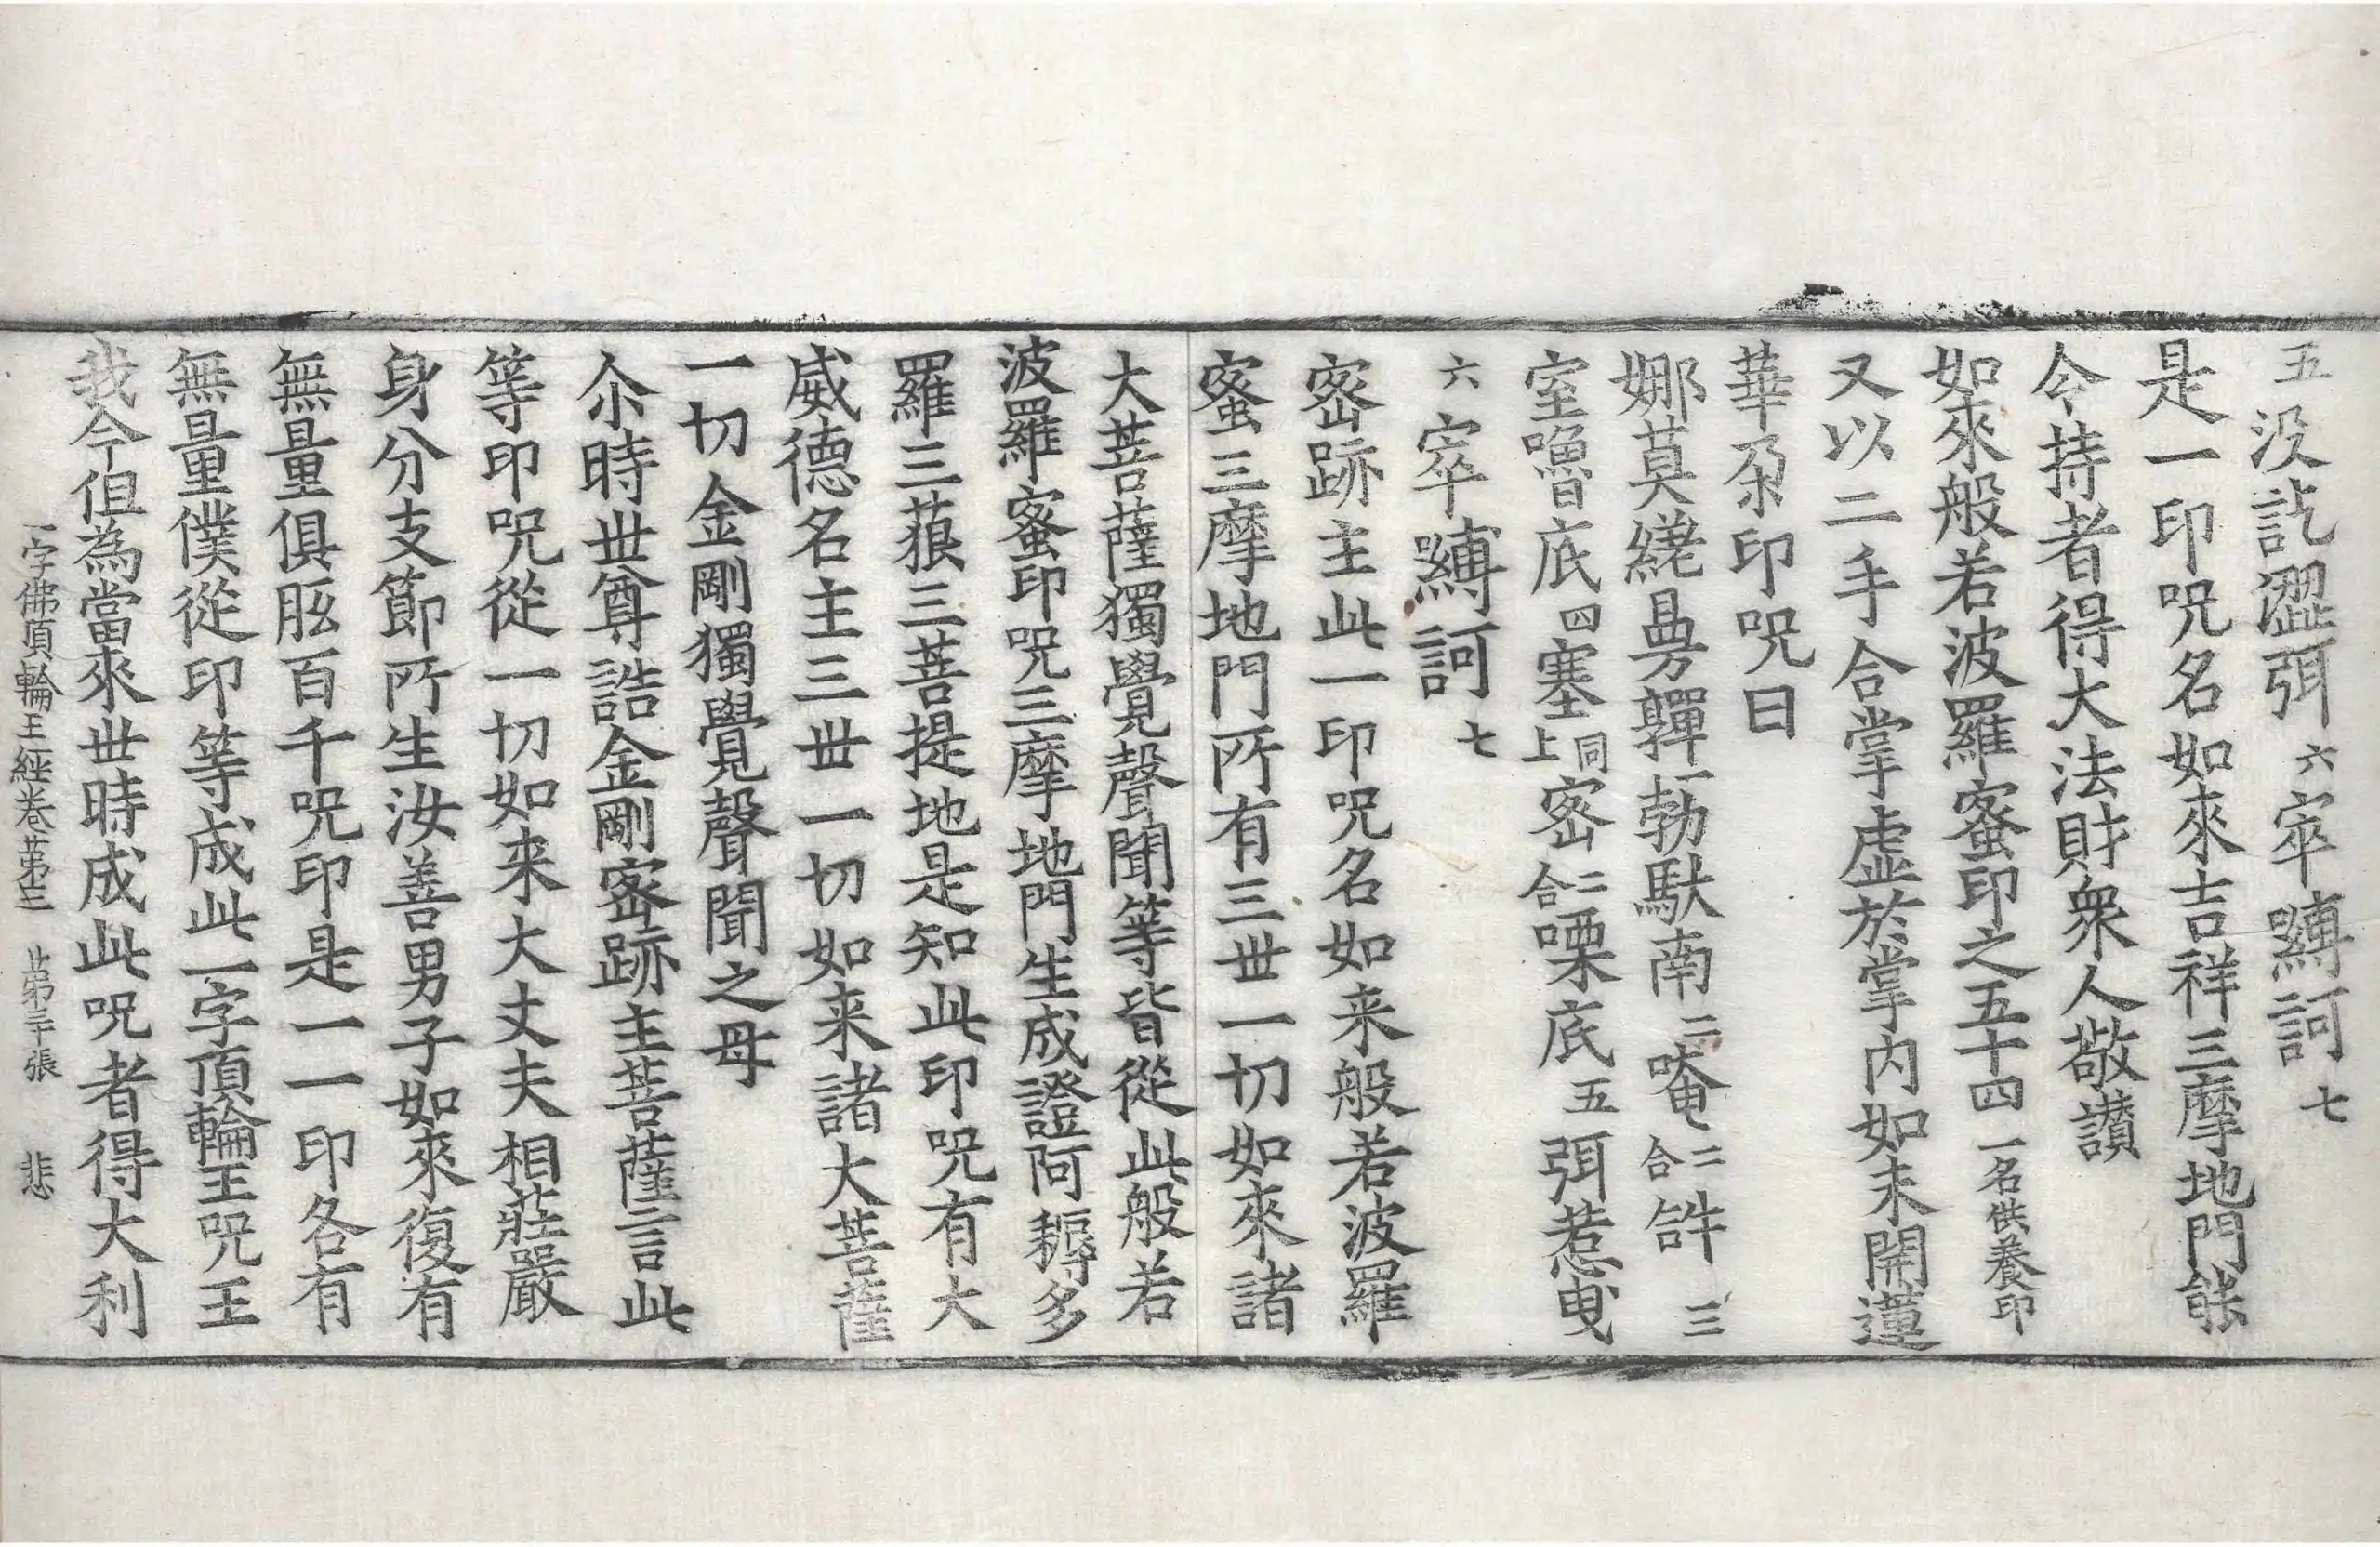 五没訖澀弭六窣嚩訶七
是一印呪名如來吉祥三摩地門能
令持者得大法財衆人敬讃
如來般若波羅蜜印之五十四一名供養印
又以二手合掌虛於掌内如未開蓮
華朶印呪曰
娜莫縒曼嚲一勃馱南二唵二合𤙖三
室嚕底四塞同上窣二合㗚底五弭惹曳
六窣嚩訶七
密跡主此一印呪名如来般若波羅
蜜三摩地門所有三世一切如來諸
大菩薩獨覺聲聞等皆從此般若
波羅蜜印呪三摩地門生成證阿耨多
羅三藐三菩提地是知此印呪有大
威德名主三世一切如来諸大菩薩
一切金剛獨覺聲聞之母
尒時世尊誥金剛密跡主菩薩言此
等印呪從一切如来大丈夫相莊嚴
身分支節所生汝善男子如來復有
無量俱胝百千呪印是一一印各有
無量僕從印等成此一字頂輪王呪王
我今但為當來世時成此呪者得大利
一字佛頂輪王經卷苐三 苐三十張 悲